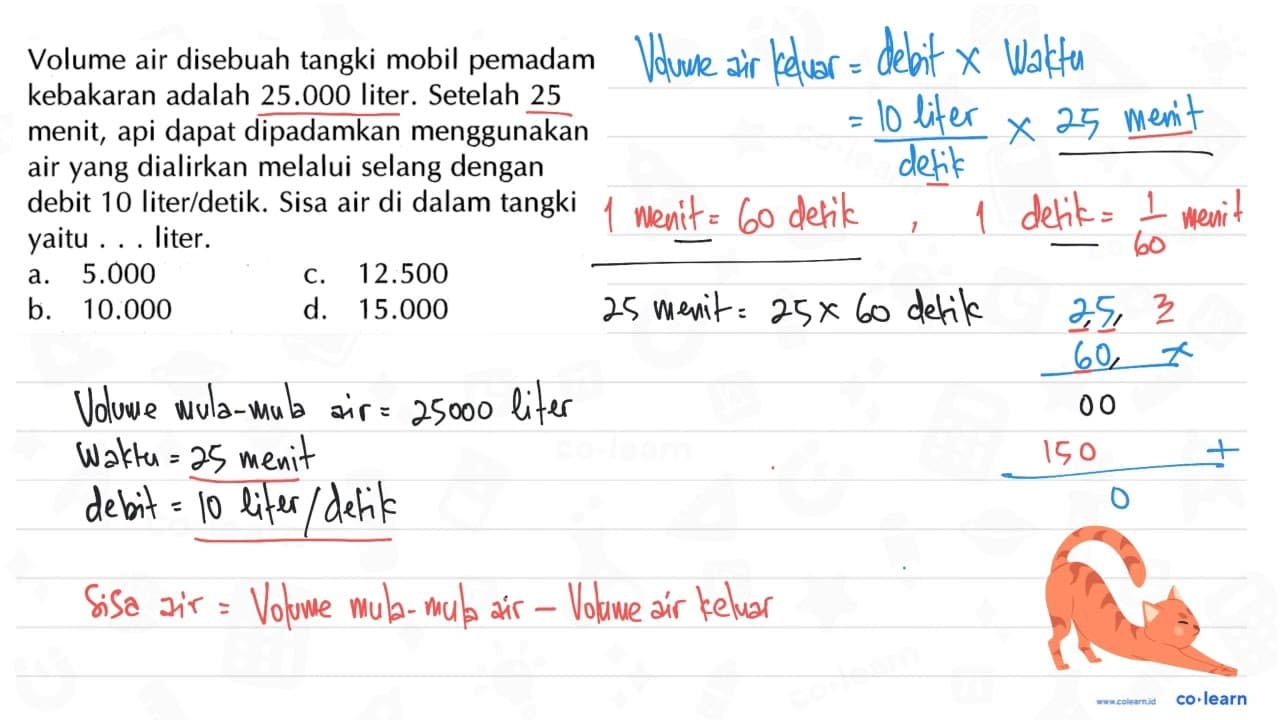 Volume air disebuah tangki mobil pemadam
kebakaran adalah 25.000 liter. Setelah 25
menit, api dapat dipadamkan menggunakan
air yang dialirkan melalui selang dengan
debit 10 liter/detik. Sisa air di dalam tangki
yaitu . . . liter.
a. 5.000 c. 12.500
b. 10.000 d. 15.000
Volume air keluar = debit x Waktu
= 10 liter / detik x 25 menit
1 menit = 60 detik , 1 detik = 1/60 menit
25 menit = 25 x 60 detik
25, 3
60, x
00
150 +
0
Volume mula-mula air = 25000 liter
Waktu = 25 menit
debit = 10 liter/detik
Sisa air = Volume mula-mula air - Volume air keluar
www.colearn.id co·learn